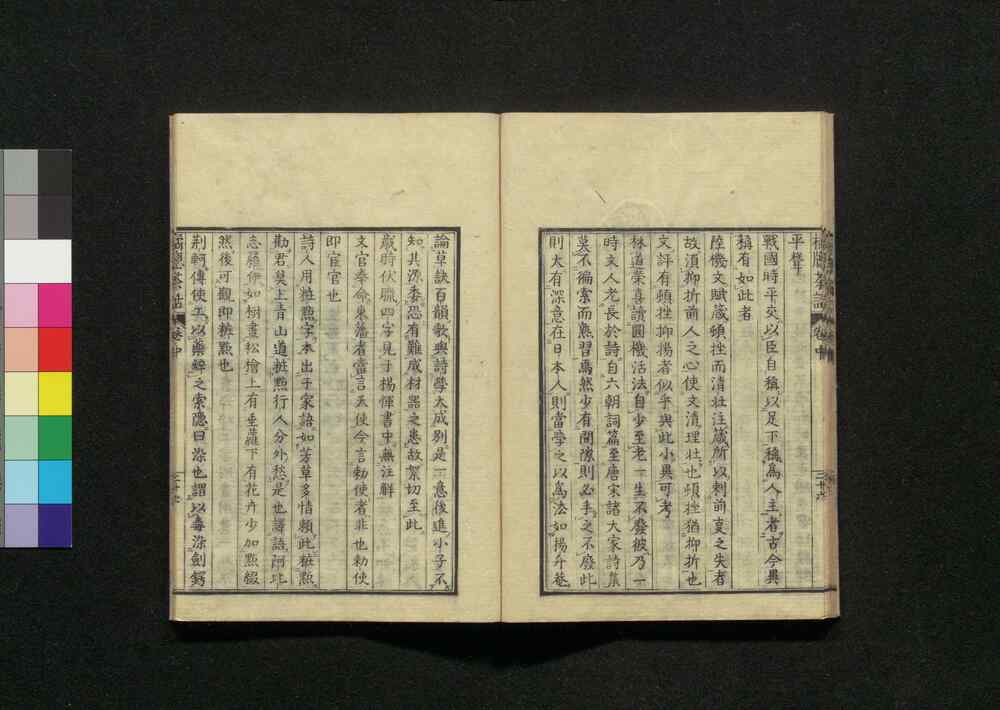 平聲
戰國時平交以臣自稱以足下稱爲人主者古今異
稱有如此者
陸機文賦箴頓挫而清壯注箴所以刺前事之失者
故須抑折前人之心使文清理壯也頓挫猶抑折也
文評有頓挫抑揚者似乎與此小異可考
林道榮喜讀圓機活法自少至老一生不廢彼乃一
時文人老長於詩自六朝詞篇至唐宋諸大家詩集
莫不徧索而熟習焉然少有間隙則必手之不廢此
則大有深意在日本人則當學之以爲法如揚升菴
論草訣百韻歌與詩學大成別是一意後進小子不
知其源委恐有難成材器之患故絮切至此
歲時伏臘四字見于楊惲書中無注解
文官奉命東藩者當言天使今言勅使者非也勅使
即宦官也
詩人用粧點字本出于家語如芳草多情頻此粧點
勸君莫上青山道粧點行人分外愁是也譯語阿埤
志羅伊如樹畫松檜上有垂蘿下有花卉少加點綴
然後可觀即粧點也
荆軻傳使工以藥焠之索隱曰染也謂以毒染劍鍔
卷中